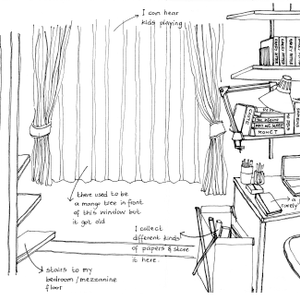 I can hear
kids playing
there used to be
a mango tree in front
of this window but
it got old
I collect
different kinds
of papers & store
it here.
stairs to my
bedroom/mezzanine
floor
MONET
a
rarely